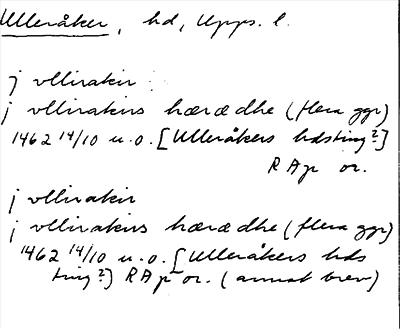 Ulleråker, hd, Upps. l.
j vllirakir
j vllirakirs hærædhe (flera ggr)
1462 14/10 u.o. [Ulleråkers hdsting?]
RAp or.
j vllirakir
j vllirakirs hærædhe (flera ggr)
1462 14/10 u.o. [Ulleråkers hds
ting?] RAp or. (annat brev)